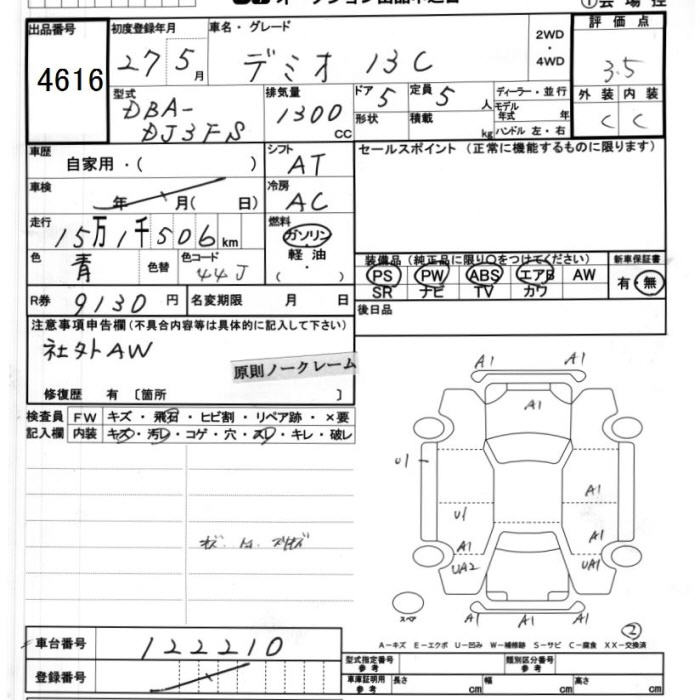 出品番号
4616
初度登録年月
27 5月
車名・グレード
デミオ 13C
2WD
・
4WD
評価点
3.5
外装 内装
C C
型式
DBA-
DJ3FS
排気量
1300
CC
ドア
5
定員
5
人
形状
積載
kg
ディーラー・並行
モデル
年式 年
ハンドル 左・右
車歴
自家用・( )
シフト
AT
セールスポイント (正常に機能するものに限ります)
車検
年 月( 日)
冷房
AC
走行
15万1千506km
燃料
ガソリン
軽油
( ・ )
色
青
色替
色コード
44J
装備品 (純正品に限り○をつけてください)
新車保証書
PS PW ABS エアB AW
SR ナビ TV カワ
有・無
R券 9130円
名変期限 月 日
後日品
注意事項申告欄(不具合内容等は具体的に記入して下さい)
社外AW
原則ノークレーム
修復歴 有 〔箇所 〕
検査員
記入欄
FW キズ・飛石・ヒビ割・リペア跡・×要
内装 キズ・汚レ・コゲ・穴・スレ・キレ・破レ
A1 A1
A1
U1
A1
U1
A1 A1
UA2 UA1
A1 A1
スペア
②
A-キズ E-エクボ U-凹み W-補修跡 S-サビ C-腐食 XX-交換済
車台番号
122210
登録番号
型式指定番号
参考
類別区分番号
参考
車庫証明用
参考
長さ cm 幅 cm 高さ cm